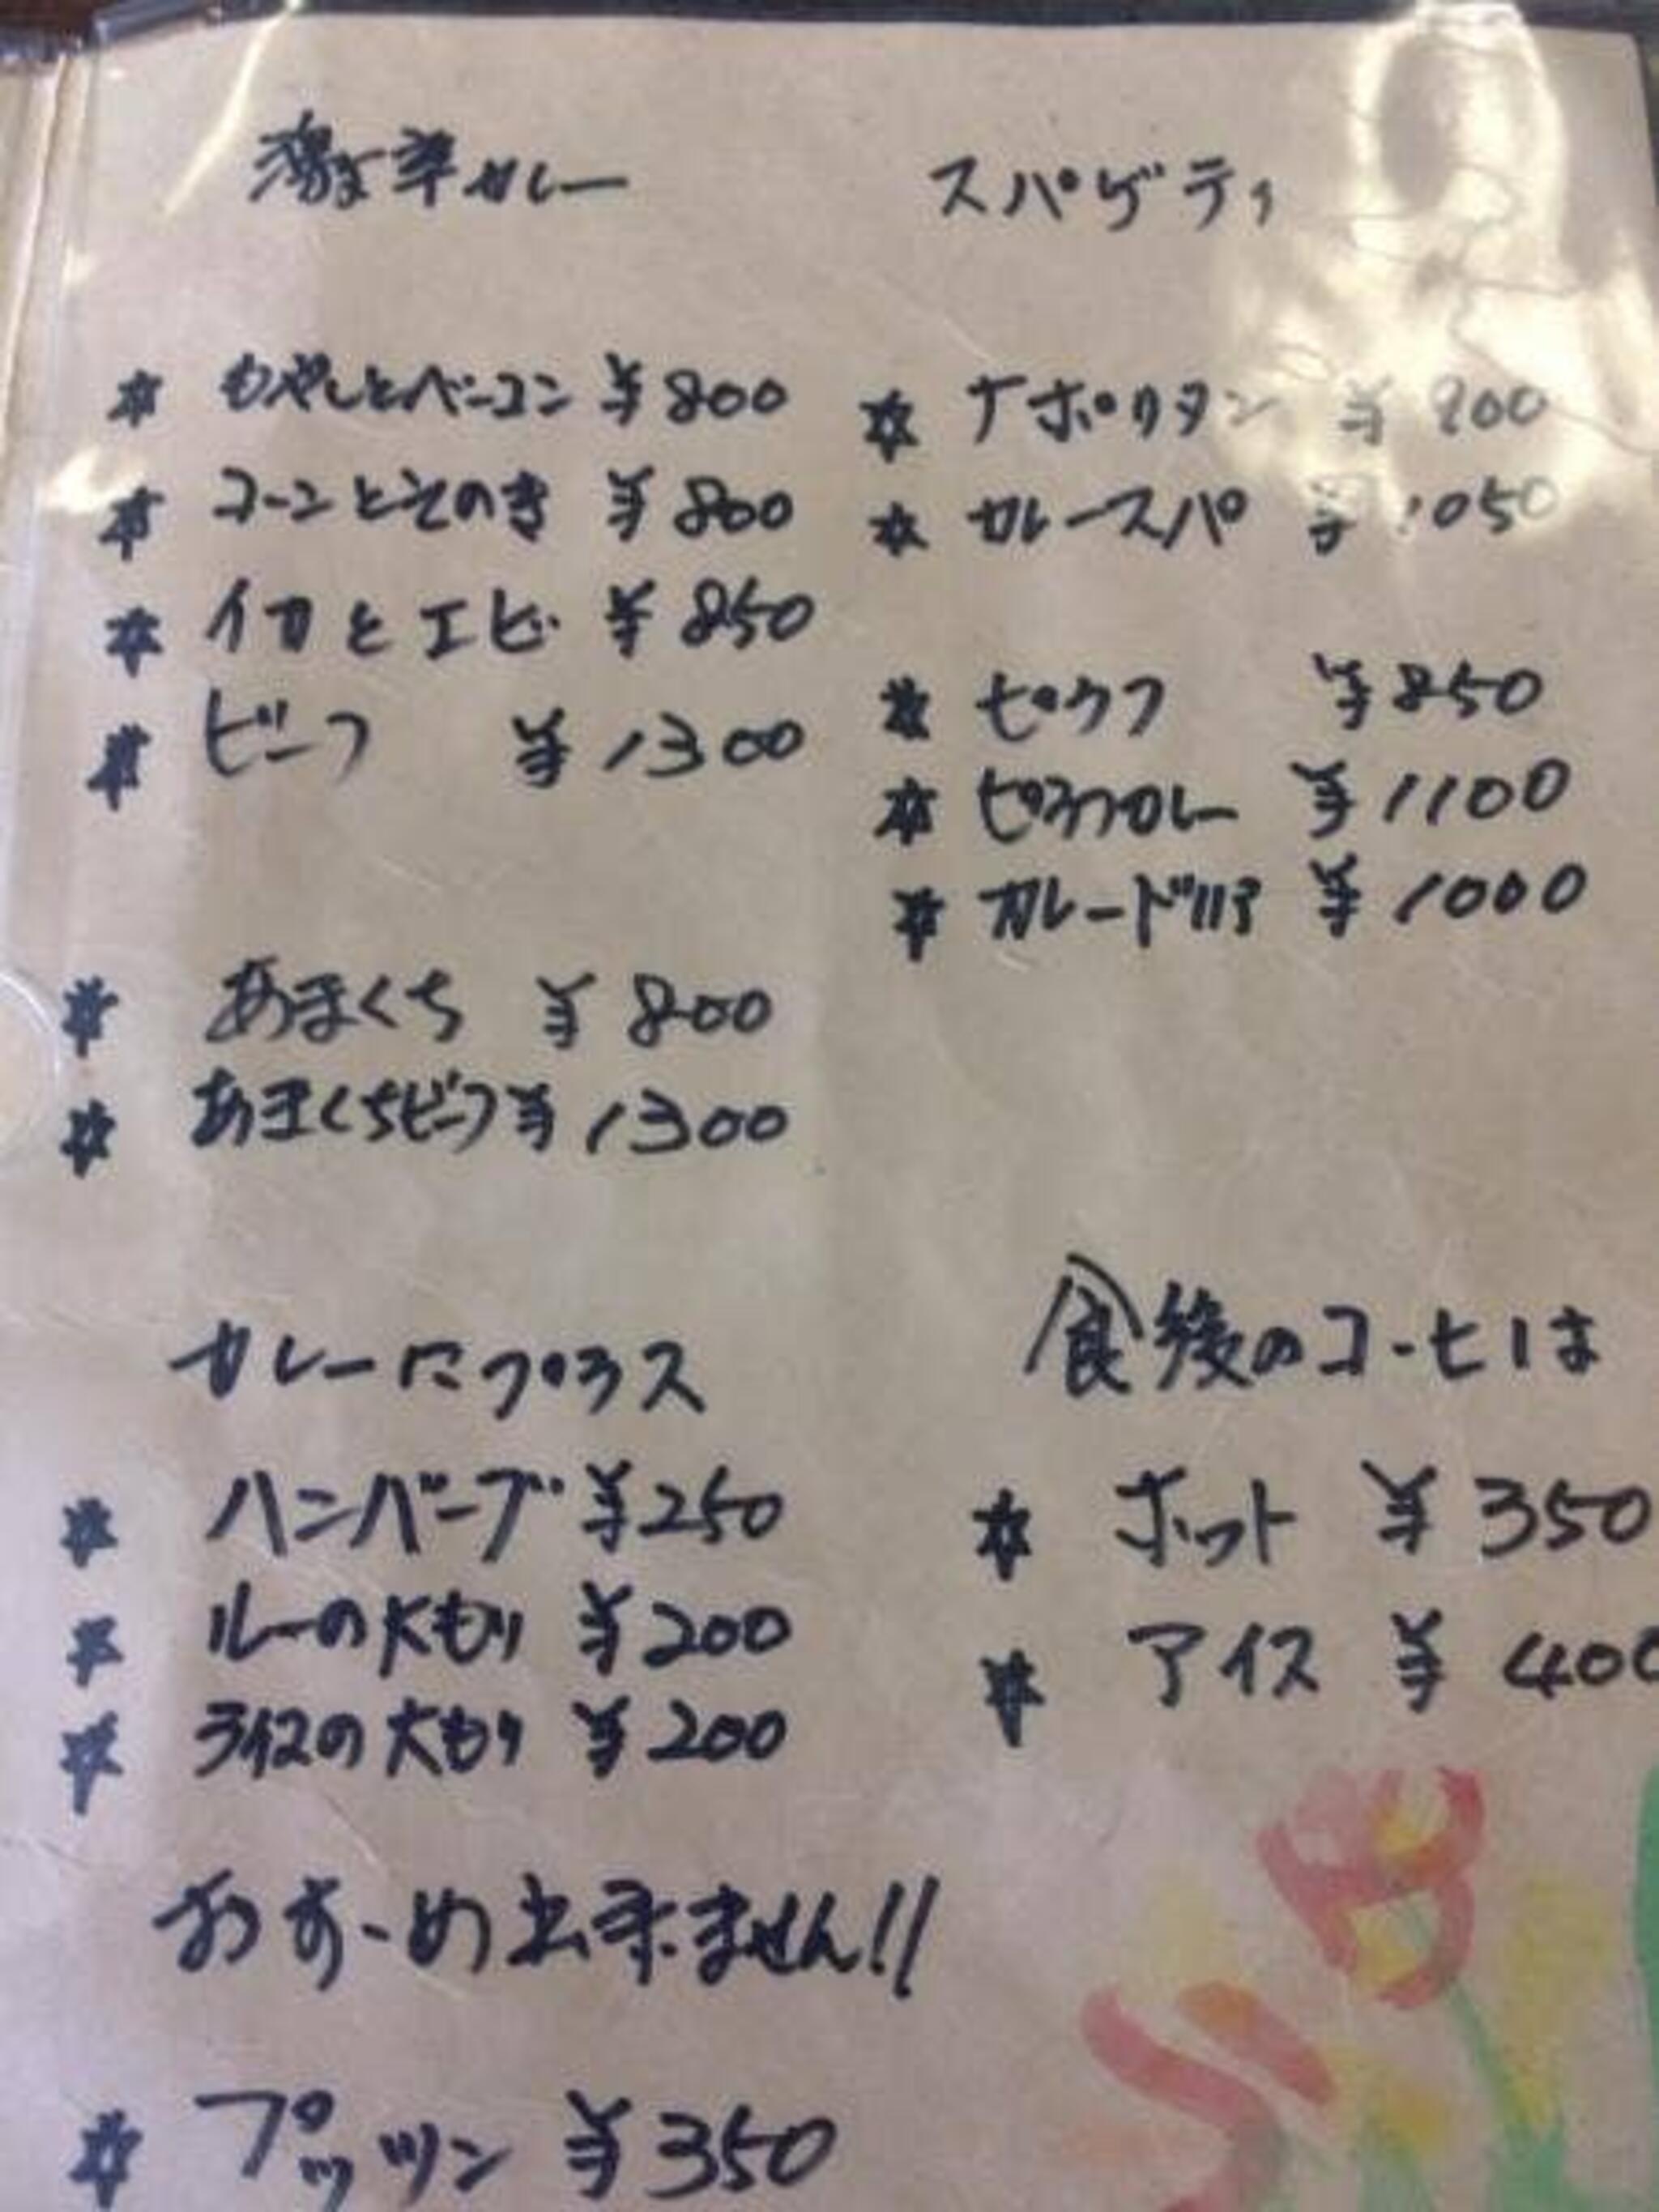 激辛カレー
* もやしとベーコン ¥800
* コーンとそのき ¥800
* イカとエビ ¥850
* ビーフ ¥1300
* あまくち ¥800
* あまくちビーフ ¥1300
カレーにプラス
* ハンバーグ ¥250
* ルーの大もり ¥200
* ライスの大もり ¥200
おすゝめ出来ません!!
* プッツン ¥350
スパゲティ
* ナポリタン ¥800
* カレースパ ¥1050
* ピラフ ¥850
* ピラフカレー ¥1100
* カレードリア ¥1000
食後のコーヒーは
* ホット ¥350
* アイス ¥400